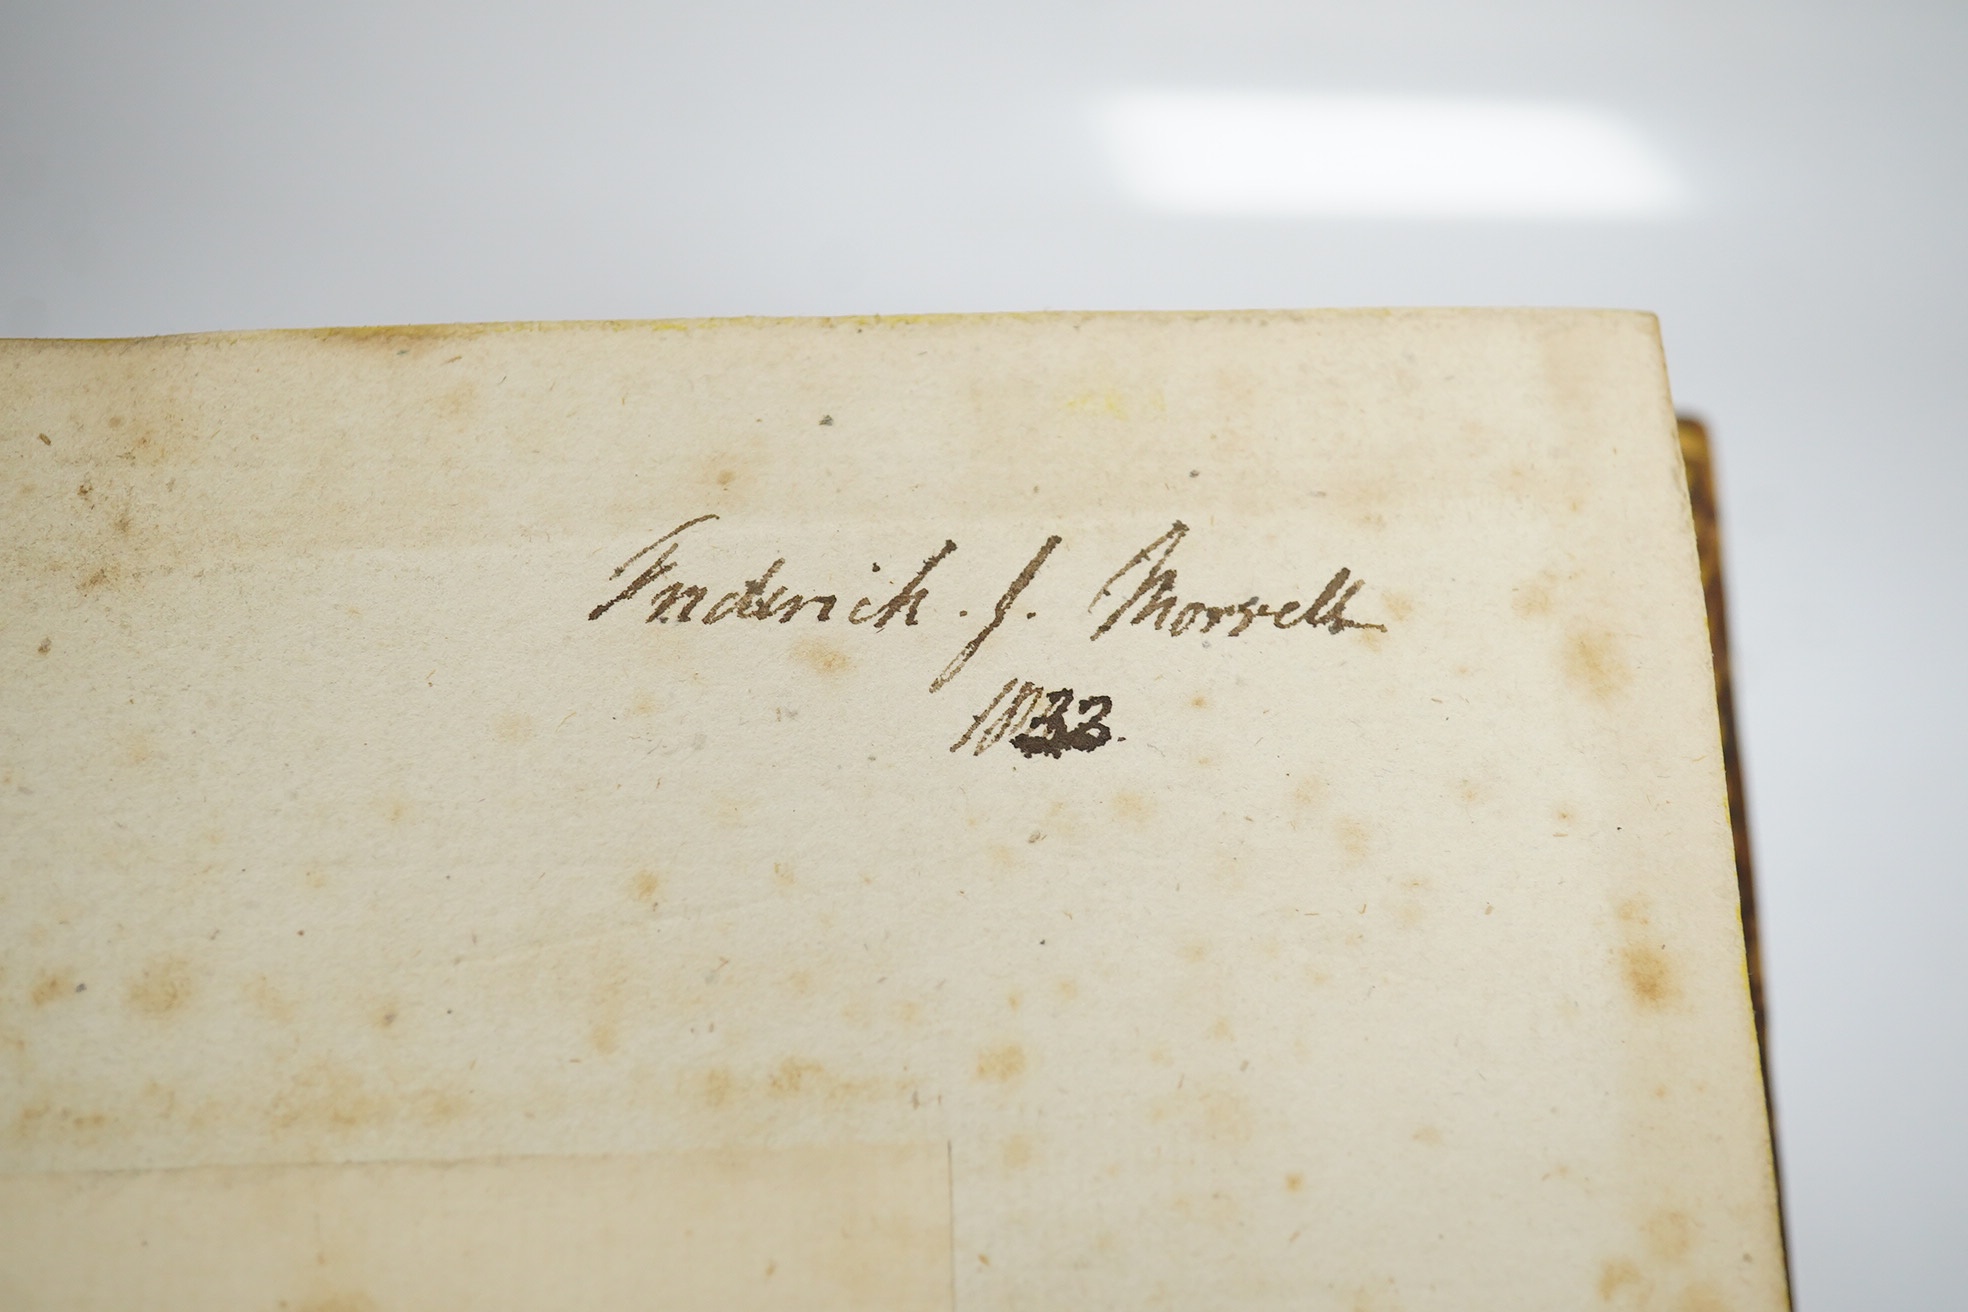 Frederick. J. Morrell
1833.